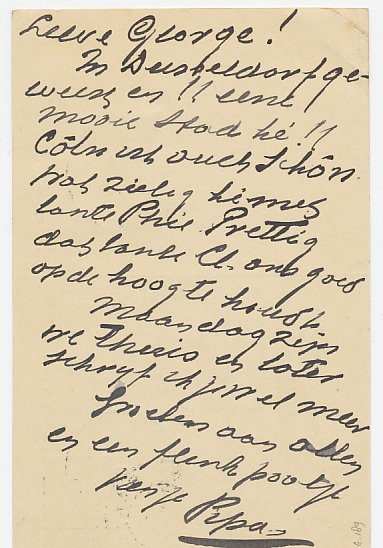 Lieve George!
In Dusseldorf ge-
weest en!! eene
mooie stad hè!!
Cöln ist auch Schön.
Wat zielig hè met
tante Phie. Prettig
dat tante Cl. ons goed
op de hoogte houdt.
Maandag zijn
we thuis en later
schrijf ik je wel meer
Groeten aan allen
en een flink pootje
van je Papa